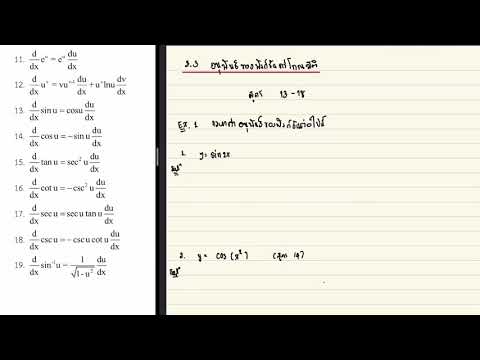 11. d/dx eᵘ = eᵘ du/dx
12. d/dx uᵛ = vuᵛ⁻¹ du/dx + uᵛ lnu dv/dx
13. d/dx sin u = cosu du/dx
14. d/dx cos u = −sin u du/dx
15. d/dx tan u = sec² u du/dx
16. d/dx cot u = −csc² u du/dx
17. d/dx sec u = sec u tan u du/dx
18. d/dx csc u = −csc u cot u du/dx
19. d/dx sin⁻¹ u = 1/√(1-u²) du/dx
3.3 อนุพันธ์ของฟังก์ชันตรีโกณมิติ
สูตร 13 - 18
Ex. 1 จงหาค่าอนุพันธ์ของฟังก์ชันต่อไปนี้
1. y = sin 2x
วิธีทำ
2. y = cos (x²) (สูตร 14)
วิธีทำ